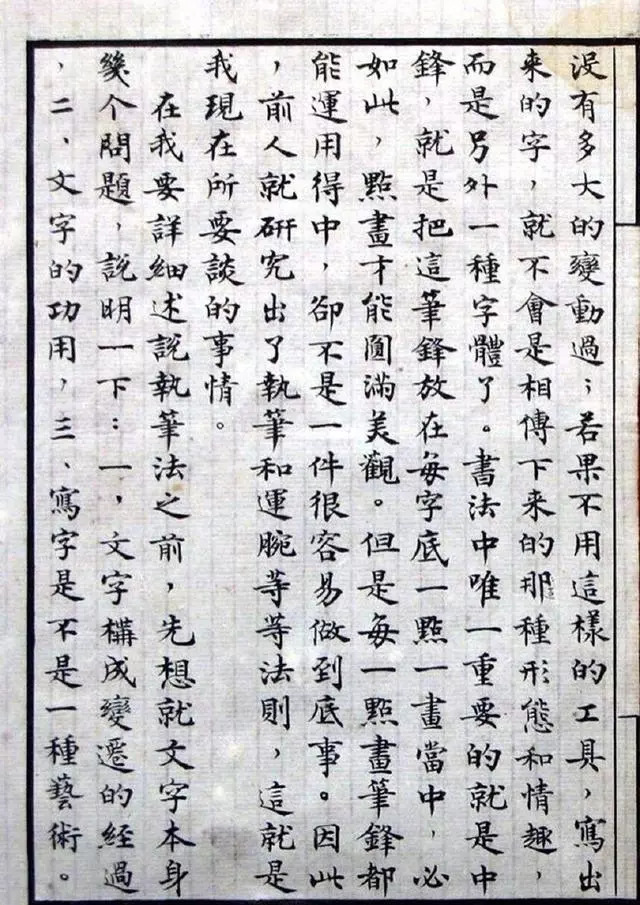 没有多大的變動過；若果不用這樣的工具，寫出
来的字，就不會是相傳下来的那種形態和情趣，
而是另外一種字體了。書法中唯一重要的就是中
鋒，就是把這筆鋒放在每字底一點一畫當中，必
如此，點畫才能圓滿美觀。但是每一點畫筆鋒都
能運用得中，卻不是一件很容易做到底事。因此
，前人就研究出了執筆和運腕等等法則，這就是
我現在所要談的事情。
在我要詳細述說執筆法之前，先想就文字本身
幾个問題，説明一下：一，文字構成變遷的經過
，二、文字的功用，三、寫字是不是一種藝術。